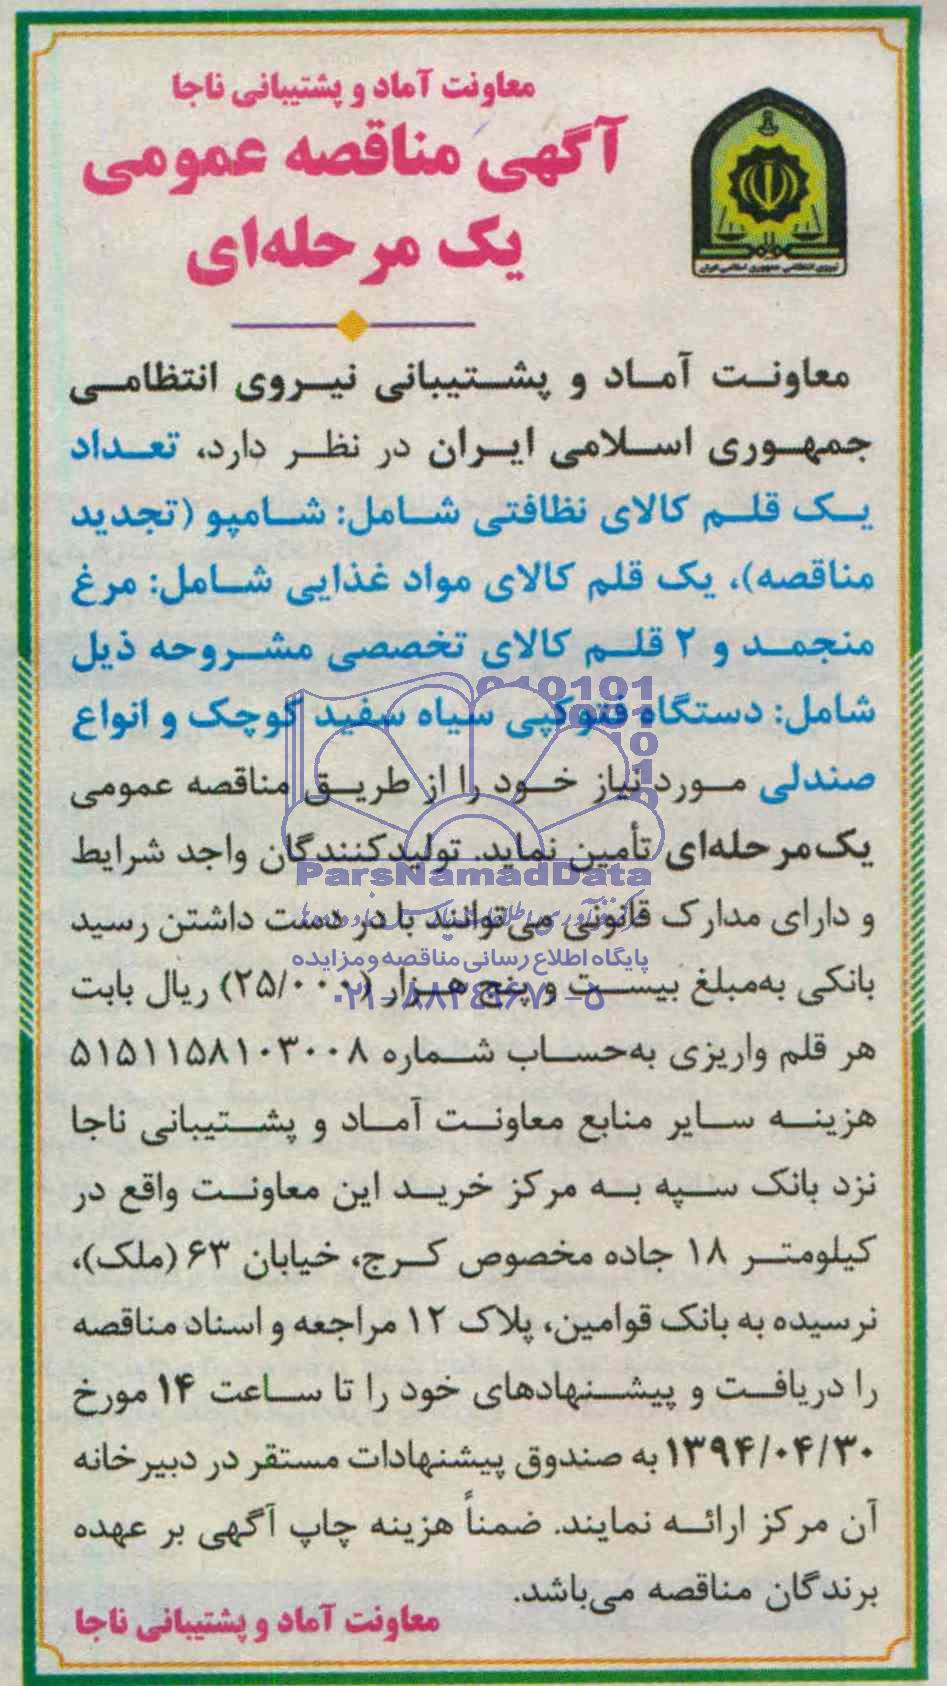 معاونت آماد و پشتیبانی ناجا
آگهی مناقصه عمومی
یک مرحله‌ای
نیروی انتظامی جمهوری اسلامی ایران
معاونت آماد و پشتیبانی نیروی انتظامی
جمهوری اسلامی ایران در نظر دارد، تعداد
یک قلم کالای نظافتی شامل: شامپو (تجدید
مناقصه)، یک قلم کالای مواد غذایی شامل: مرغ
منجمد و ۲ قلم کالای تخصصی مشروحه ذیل
شامل: دستگاه فتوکپی سیاه سفید کوچک و انواع
صندلی مورد نیاز خود را از طریق مناقصه عمومی
یک‌مرحله‌ای تأمین نماید. تولیدکنندگان واجد شرایط
ParsNamadData
و دارای مدارک قانونی می‌توانند با در دست داشتن رسید
پایگاه اطلاع رسانی مناقصه و مزایده
بانکی به‌مبلغ بیست و پنج هزار (۲۵/۰۰۰) ریال بابت
هر قلم واریزی به‌حساب شماره ۵۱۵۱۱۵۸۱۰۳۰۰۸
هزینه سایر منابع معاونت آماد و پشتیبانی ناجا
نزد بانک سپه به مرکز خرید این معاونت واقع در
کیلومتر ۱۸ جاده مخصوص کرج، خیابان ۶۳ (ملک)،
نرسیده به بانک قوامین، پلاک ۱۲ مراجعه و اسناد مناقصه
را دریافت و پیشنهادهای خود را تا ساعت ۱۴ مورخ
۱۳۹۴/۰۴/۳۰ به صندوق پیشنهادات مستقر در دبیرخانه
آن مرکز ارائه نمایند. ضمناً هزینه چاپ آگهی بر عهده
برندگان مناقصه می‌باشد.
معاونت آماد و پشتیبانی ناجا